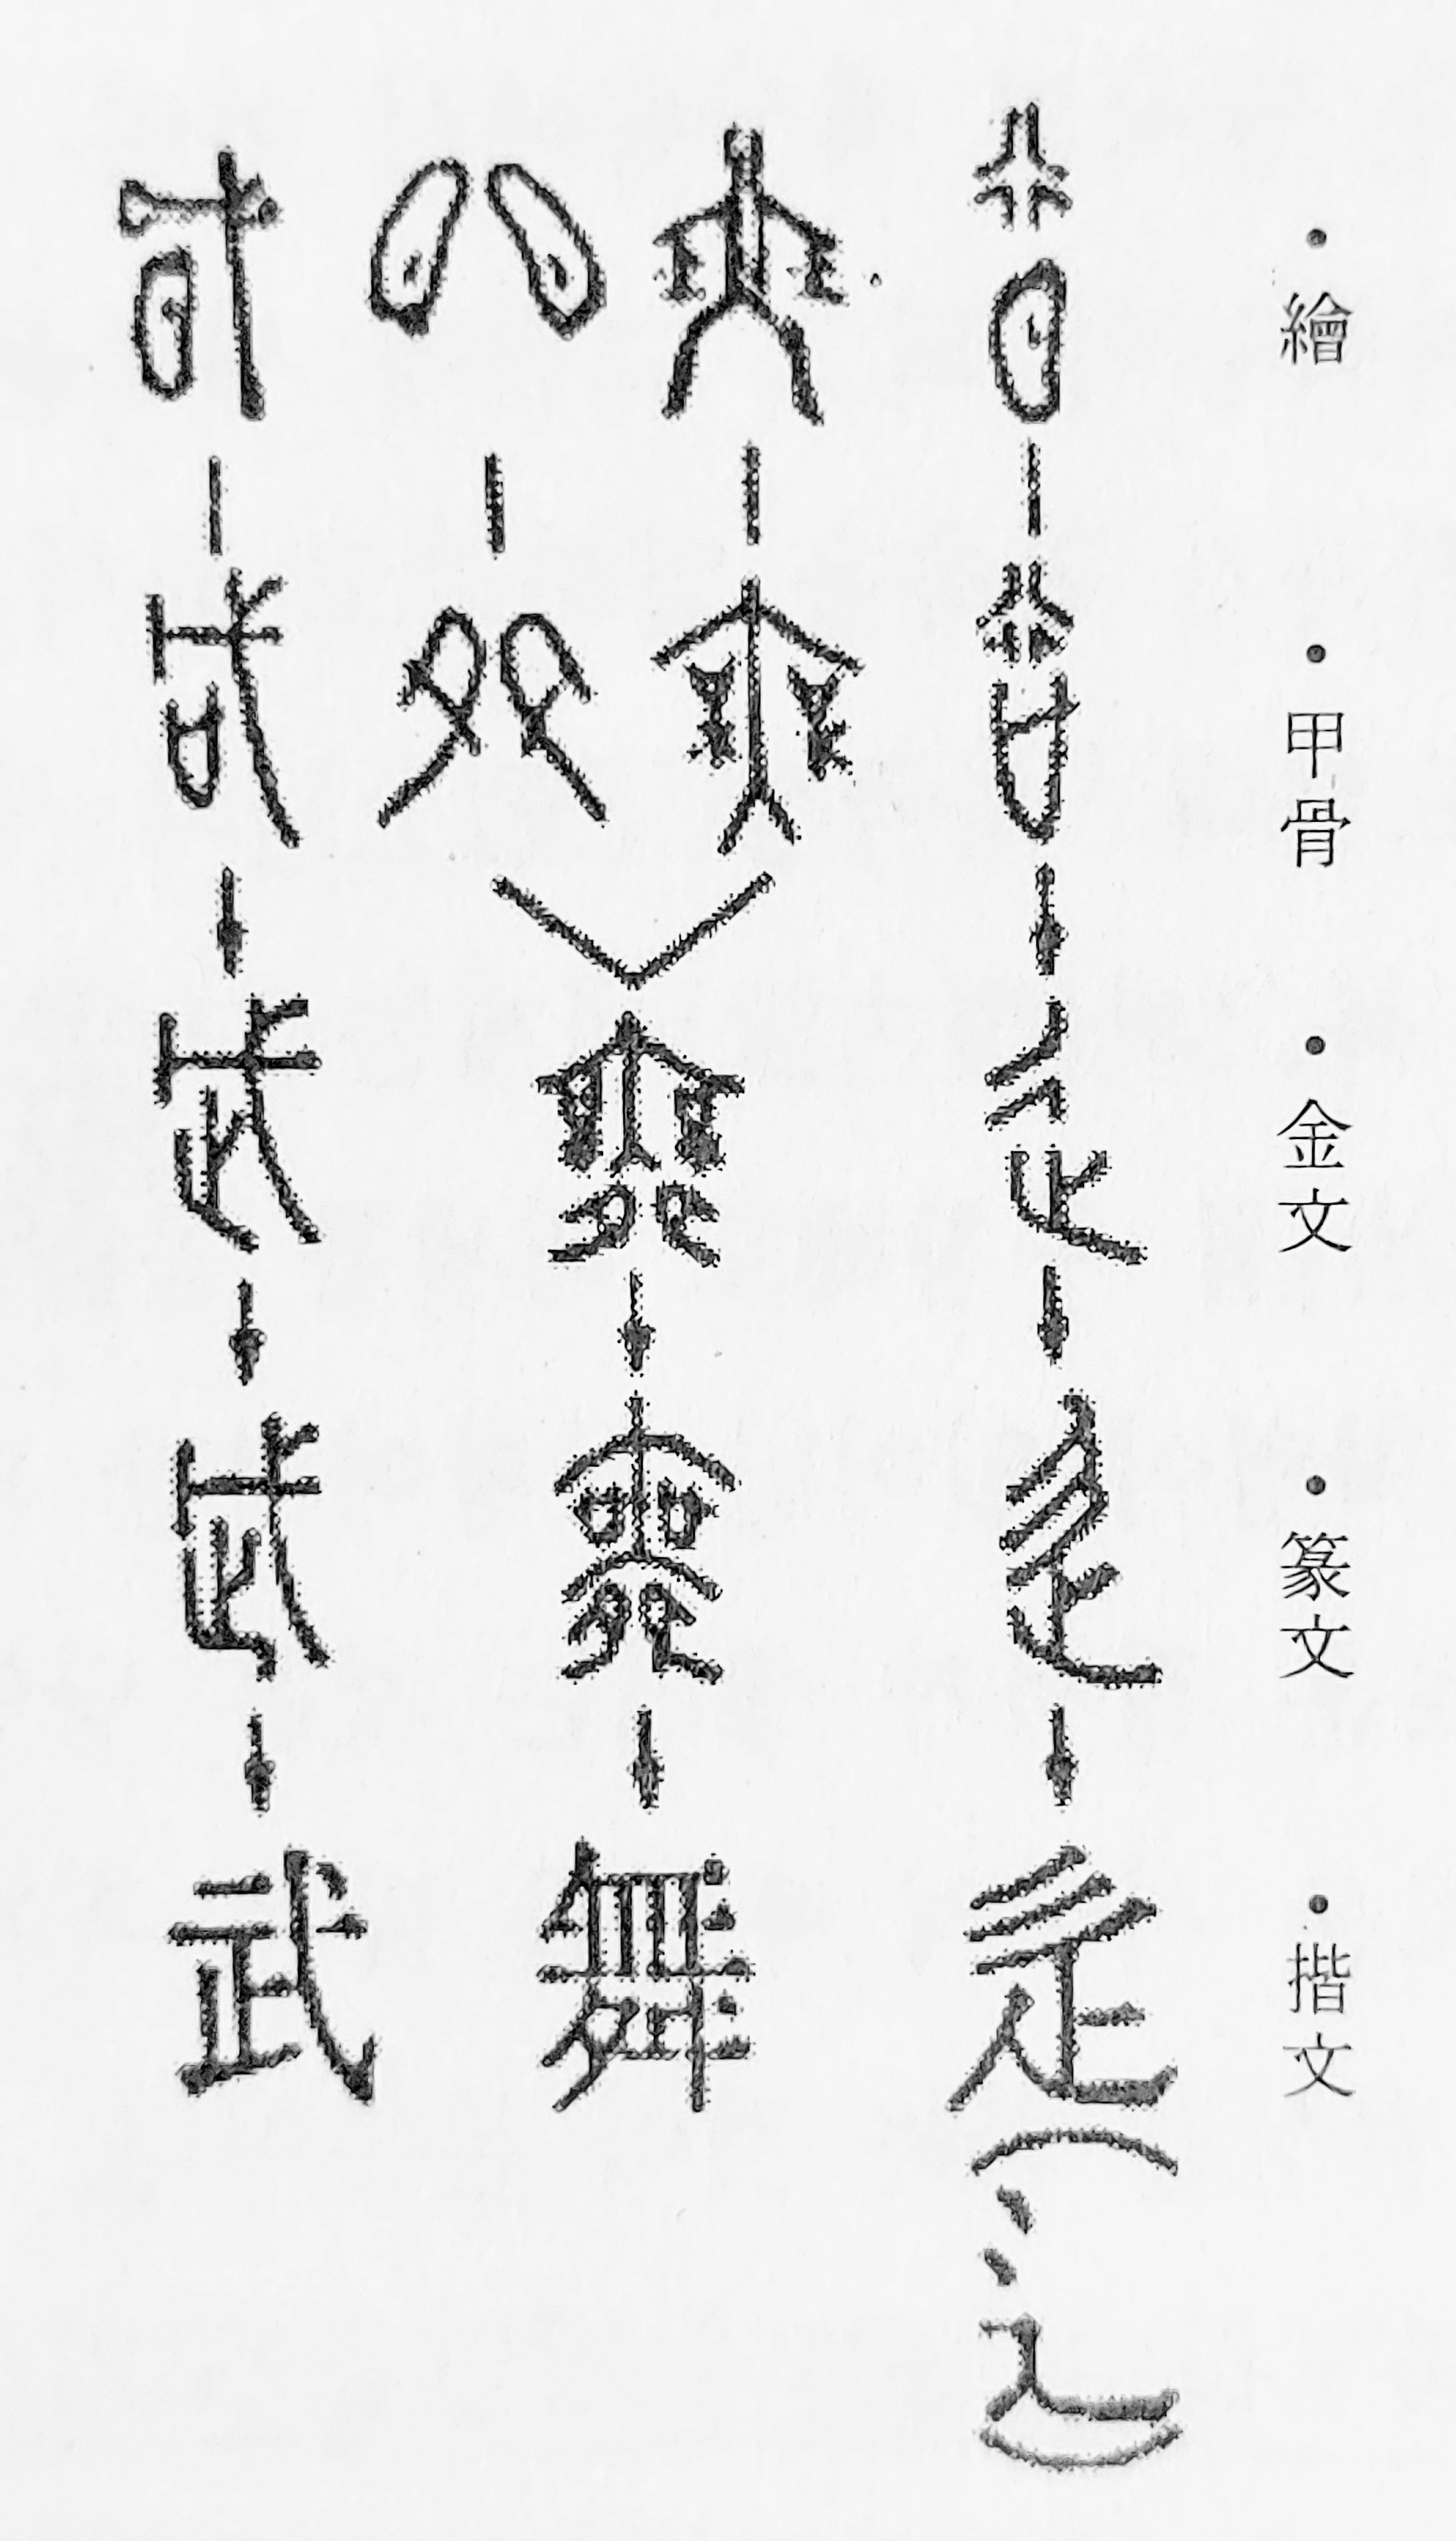 ・繪 ・甲骨 ・金文 ・篆文 ・揩文
辵(辶)
舞
武